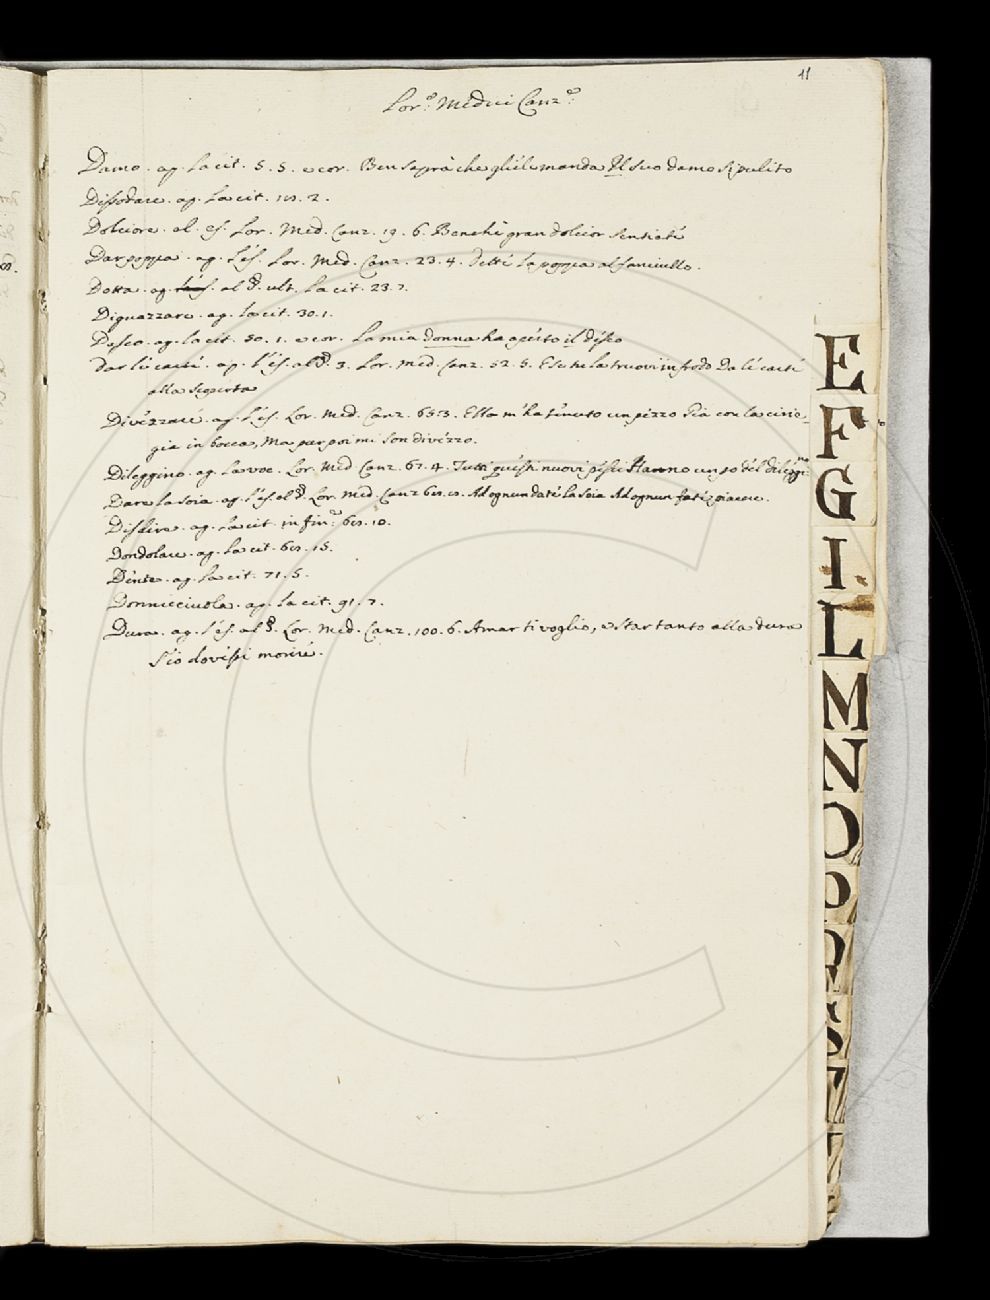 11
Lor.º Medici Canz.º
Damo. ag. la cit. 5. 5. e cor. Ben saprà che gliele manda Il suo damo sì pulito
Dispodare. ag. la cit. 2.
Dolciore. al. es. Lor. Med. Canz. 19. 6. Benchè gran dolcior sentiate
Dar poppa. ag. l'es. Lor. Med. Canz. 23. 4. Dette la poppa al fanciullo.
Dotta. ag. l'es. al §. ult. la cit. 23. 7.
Diguazzare. ag. la cit. 30. 1.
Desco. ag. la cit. 50. 1. e cor. La mia donna ha aperto il desco
Dar le carte. ag. l'es. al §. 3. Lor. Med. Canz. 52. 5. E se te la truovi in frodo Da le carte
alla scoperta
Divezzare. ag. l'es. Lor. Med. Canz. 65. 3. Ella m'ha tenuto un pezzo Già con la cirie-
gia in bocca, Ma pur poi mi son divezzo.
Dileggino. ag. la voc. Lor. Med Canz. 67. 4. Tutti questi nuovi pesci Hanno un po del dileggino
Dare la soia. ag. l'es. al §. Lor. Med. Canz Ad ognun date la soia Ad ognun fate piacere.
Disdire. ag. la cit. in fin. 10.
Dondolare. ag. la cit. 15.
Dente. ag. la cit. 71. 5.
Donnicciuola. ag. la cit. 91. 7.
Dura. ag. l'es. al §. Lor. Med. Canz. 100. 6. Amar ti voglio, e star tanto alla dura
S'io dovessi morire.
E
F
G
I
L
M
N
O
P
Q
S
T
V